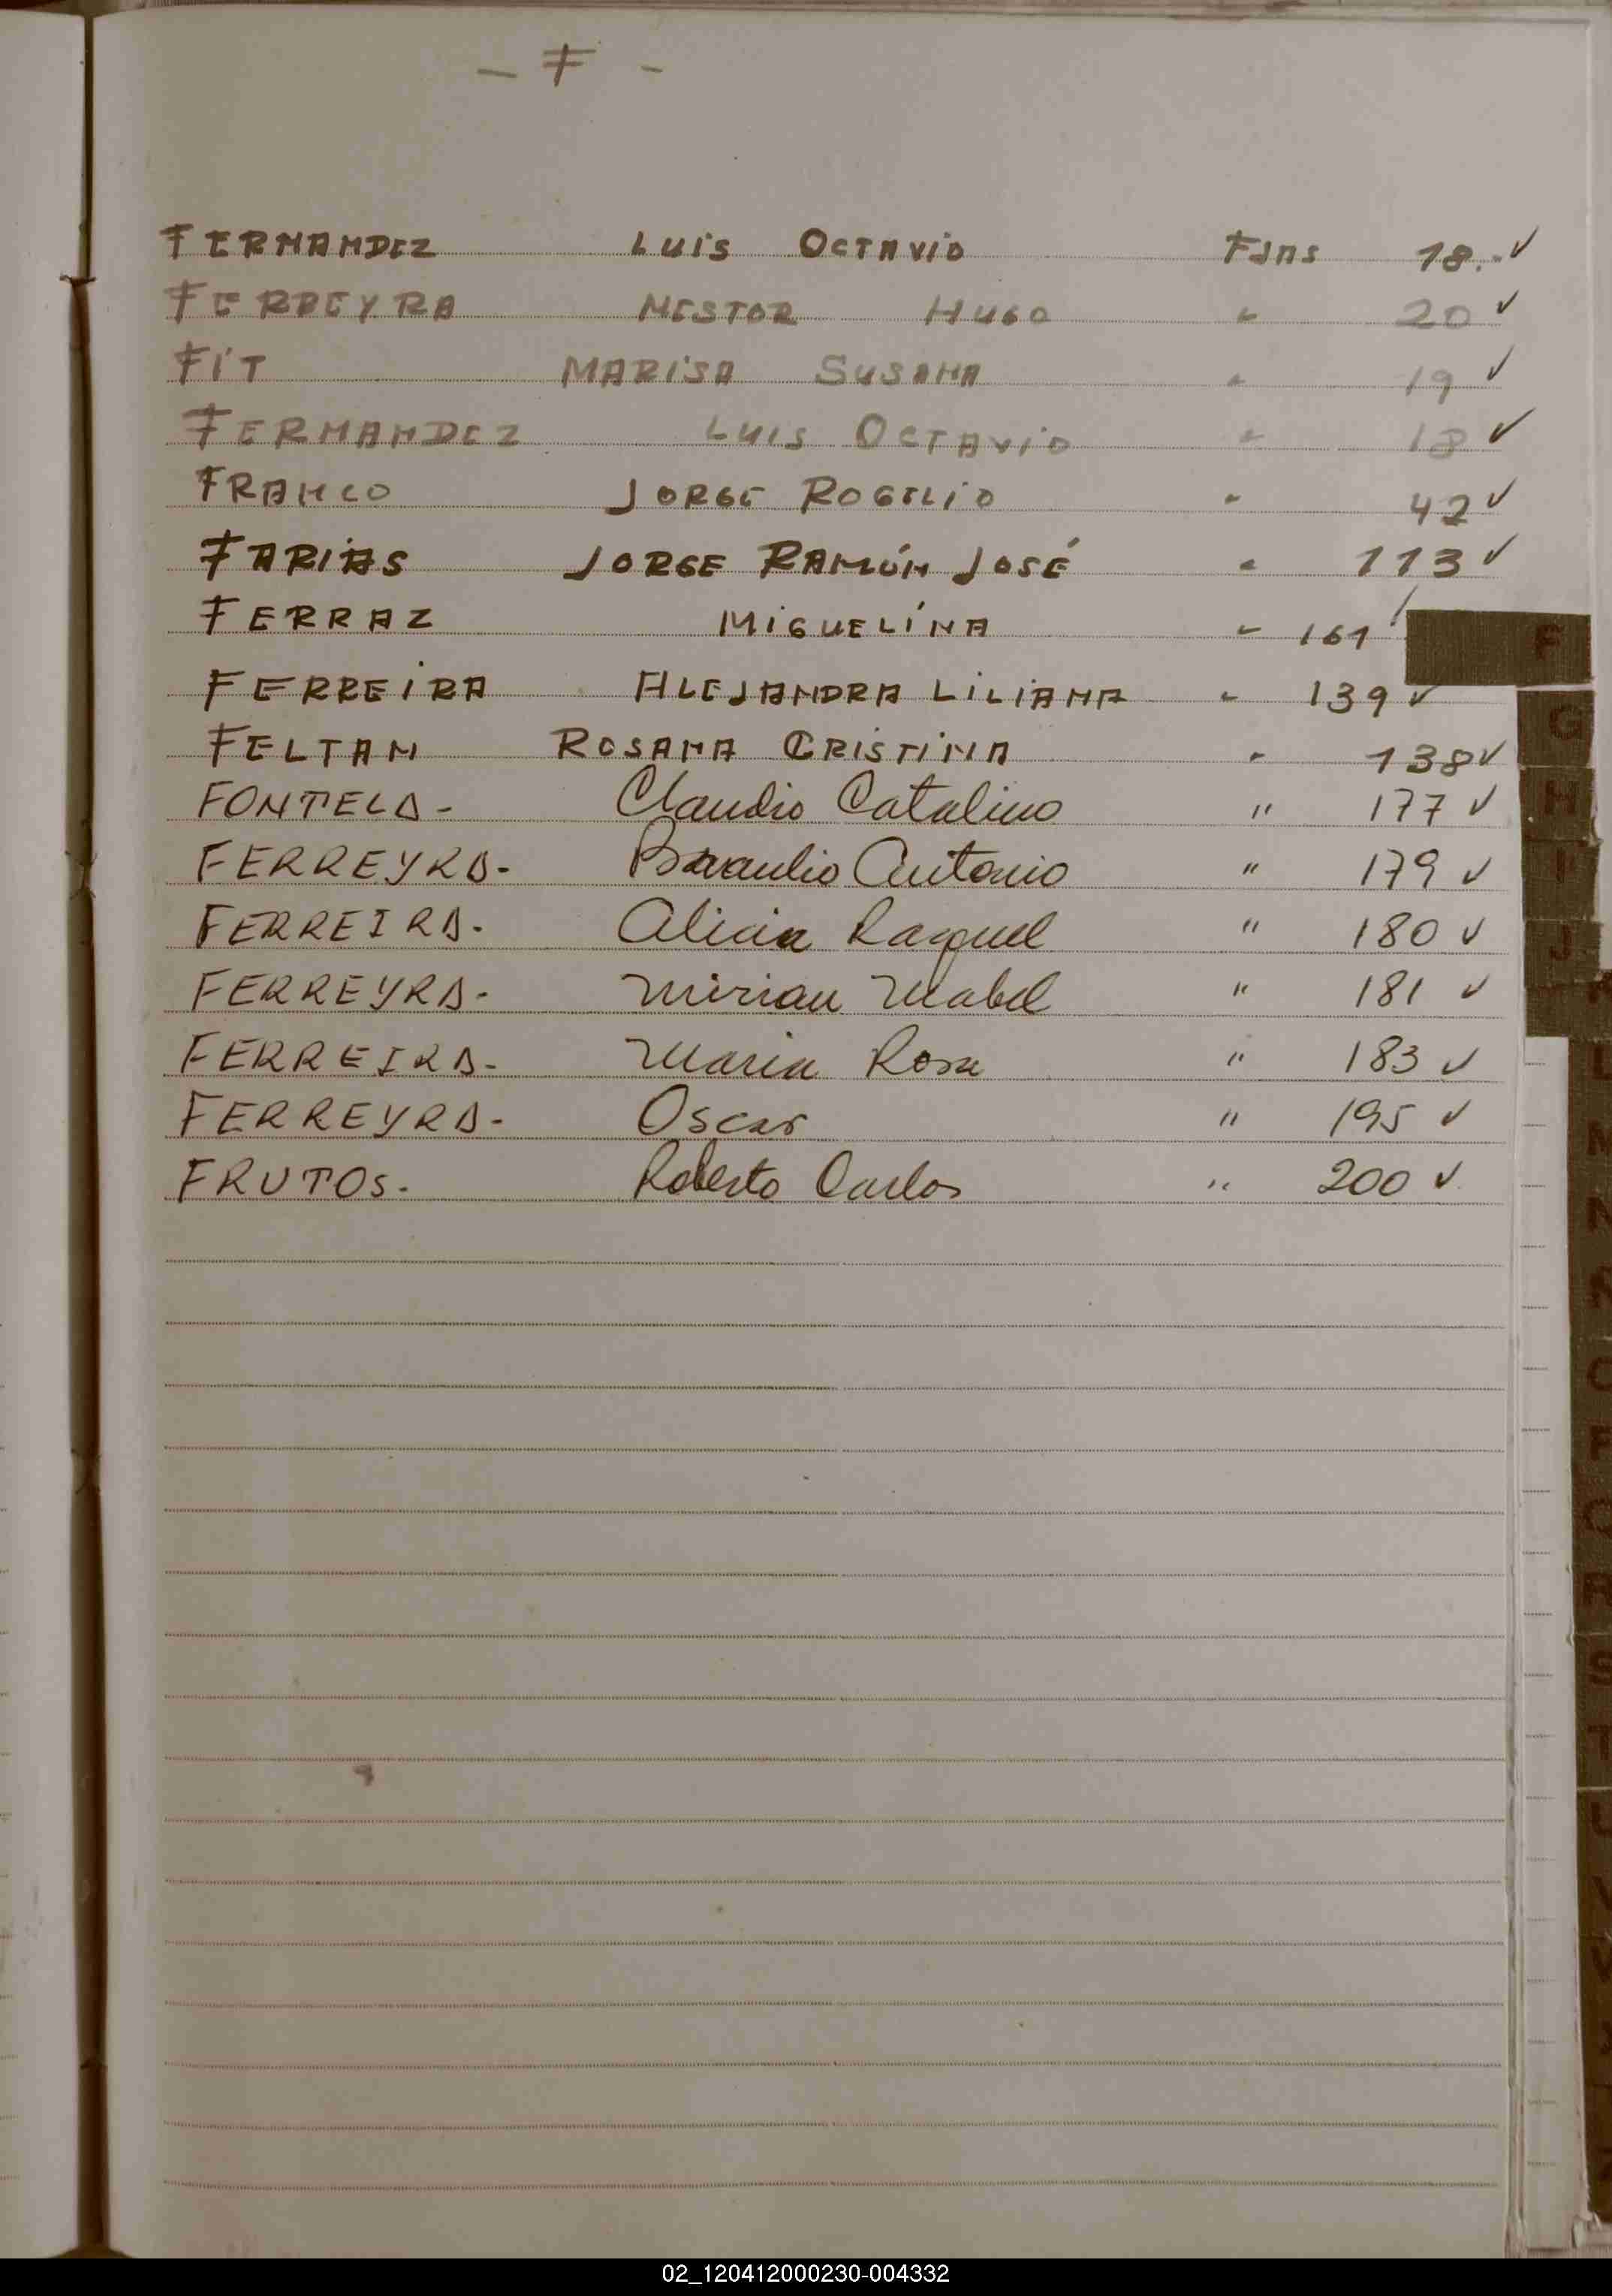 - F -
FERNANDEZ LUIS OCTAVIO Fjas 18.- ✓
FERREYRA NESTOR HUGO " 20 ✓
FIT MARISA SUSANA " 19 ✓
FERNANDEZ LUIS OCTAVIO " 18 ✓
FRANCO JORGE ROGELIO " 42 ✓
FARIAS JORGE RAMÓN JOSÉ " 113 ✓
FERRAZ MIGUELÍNA " 161
FERREIRA ALEJANDRA LILIANA " 139 ✓
FELTAN ROSANA CRISTINA " 138 ✓
FONTELA- Claudio Catalino " 177 ✓
FERREYRA- Braulio Antonio " 179 ✓
FERREIRA- Alicia Raquel " 180 ✓
FERREYRA- Mirian Mabel " 181 ✓
FERREIRA- Maria Rosa " 183 ✓
FERREYRA- Oscar " 195 ✓
FRUTOS- Roberto Carlos " 200 ✓
F
G
H
I
J
L
M
N
R
S
T
02_120412000230-004332